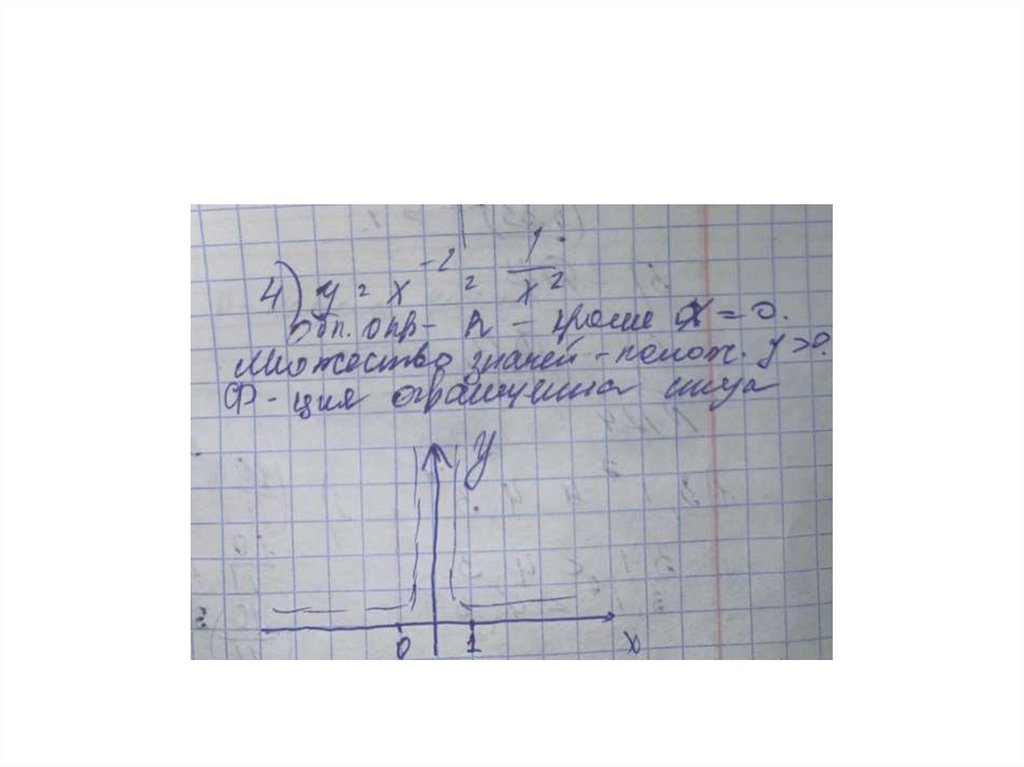 4) y = x⁻² = 1/x²
Обл. опр - R - кроме x = 0.
Множество значей - полож. y > 0.
Ф-ция ограничена снизу
y
0 1 x